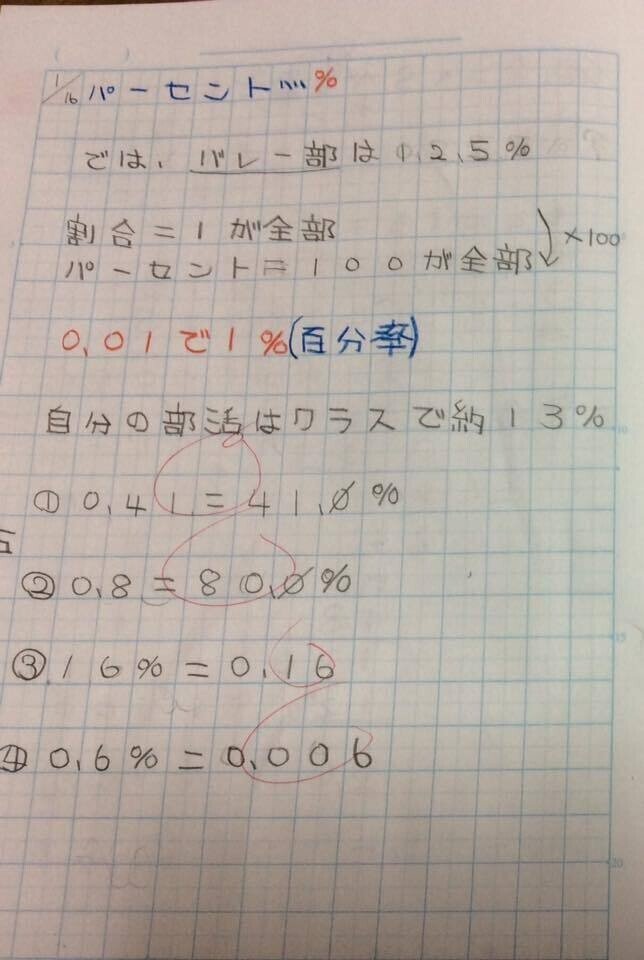 1/16 パーセント…%
では、バレー部は12.5%
割合=1が全部
パーセント=100が全部
×100
0.01で1%(百分率)
自分の部活はクラスで約13%
① 0.41=41.0%
② 0.8=80.0%
③ 16%=0.16
④ 0.6%=0.006